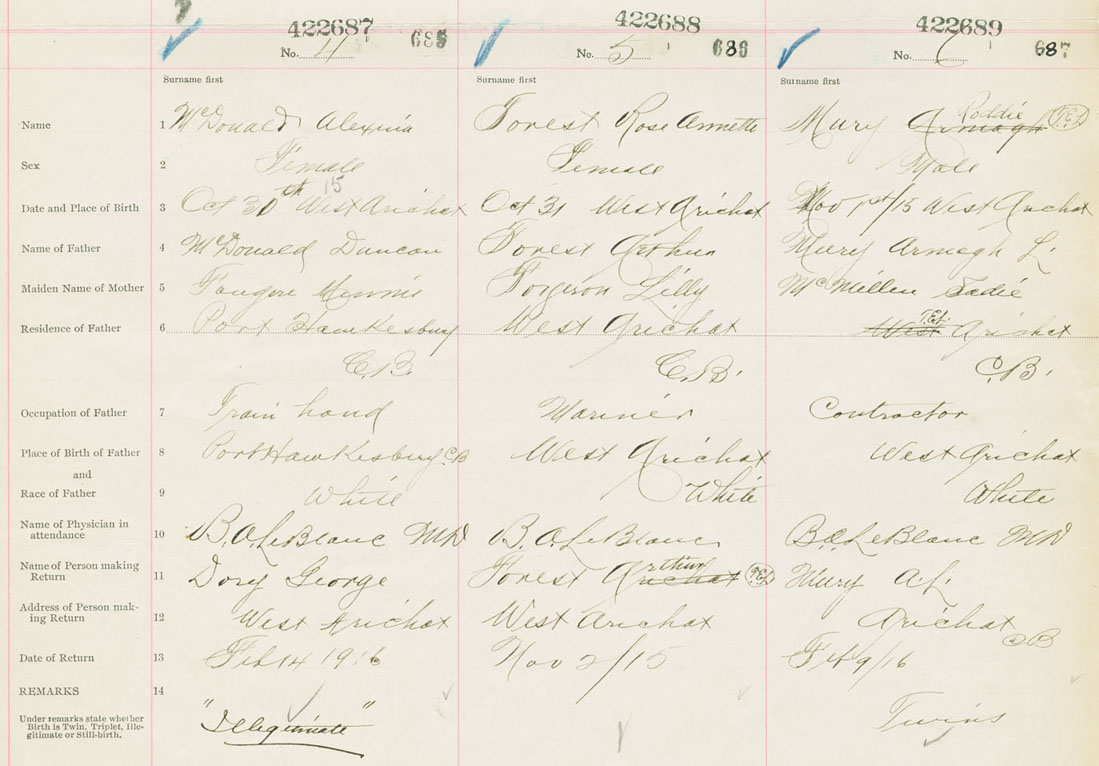 422687 422688 422689
No. 4 685 No. 5 686 No. 6 687
Surname first Surname first Surname first
Roddie
Name 1 McDonald Alexina Forest Rose Annette Mury Armagh T.E.J.
Sex 2 Female Female Male
Date and Place of Birth 3 Oct 30th 15 West Arichat Oct 31 West Arichat Nov 1st/15 West Arichat
Name of Father 4 McDonald Duncan Forest Arthur Mury Armagh L.
Maiden Name of Mother 5 Fougere Minnie Forgeron Lilly McMillen Sadie
Residence of Father 6 Port Hawkesbury West Arichat West Arichat
C.B. C.B. C.B.
Occupation of Father 7 Train hand Mariner Contractor
Place of Birth of Father 8 Port Hawkesbury C.B West Arichat West Arichat
and
Race of Father 9 White White White
Name of Physician in
attendance 10 B.A. LeBlanc MD B.A. LeBlanc B.A. LeBlanc MD
Name of Person making
Return 11 Dory George Forest Arichat Arthur Mury A.L.
Address of Person mak-
ing Return 12 West Arichat West Arichat Arichat CB
Date of Return 13 Feb 14 1916 Nov 2/15 Feb 9/16
REMARKS 14
Under remarks state whether
Birth is Twin, Triplet, Ille-
gitimate or Still-birth. "Illegitimate" Twins